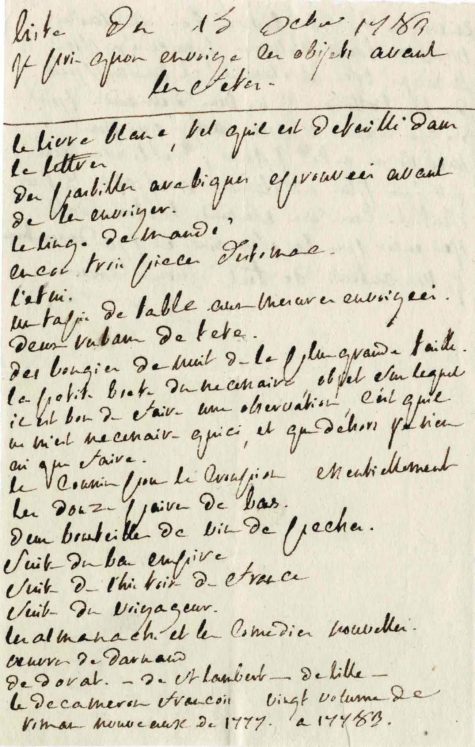 liste Du 15 octbre 1783
je prie quon envoiye ces objets avant
les fetes.
le livre blanc, tel quil est detaillé dans
la lettre
des pastilles arabiques eprouvees avant
de les envoiyer.
le linge demandé,
encor trois pieces d'estomac.
l'etui.
un tapis de table aux mesures envoiyées.
deux rubans de tete.
des bougies de nuit de la plus grande taille.
la petite boete du necessaire objet sur lequel
il est bon de faire une observation, cest quil
ne m'est necessaire quici, et que dehors je nen
ai que faire.
le coussin pour le croupion essentiellement
les douze paires de bas.
deux bouteilles de vin de peches.
suite du bas empire
suite de l'histoire de france
suite du voyageur.
les almanachs et les comedies nouvelles.
œuvres de darnaud
de dorat. — de st lambert — de lille —
le decameron francois vingt volumes de
romans nouveaux de 1777. a 1783.